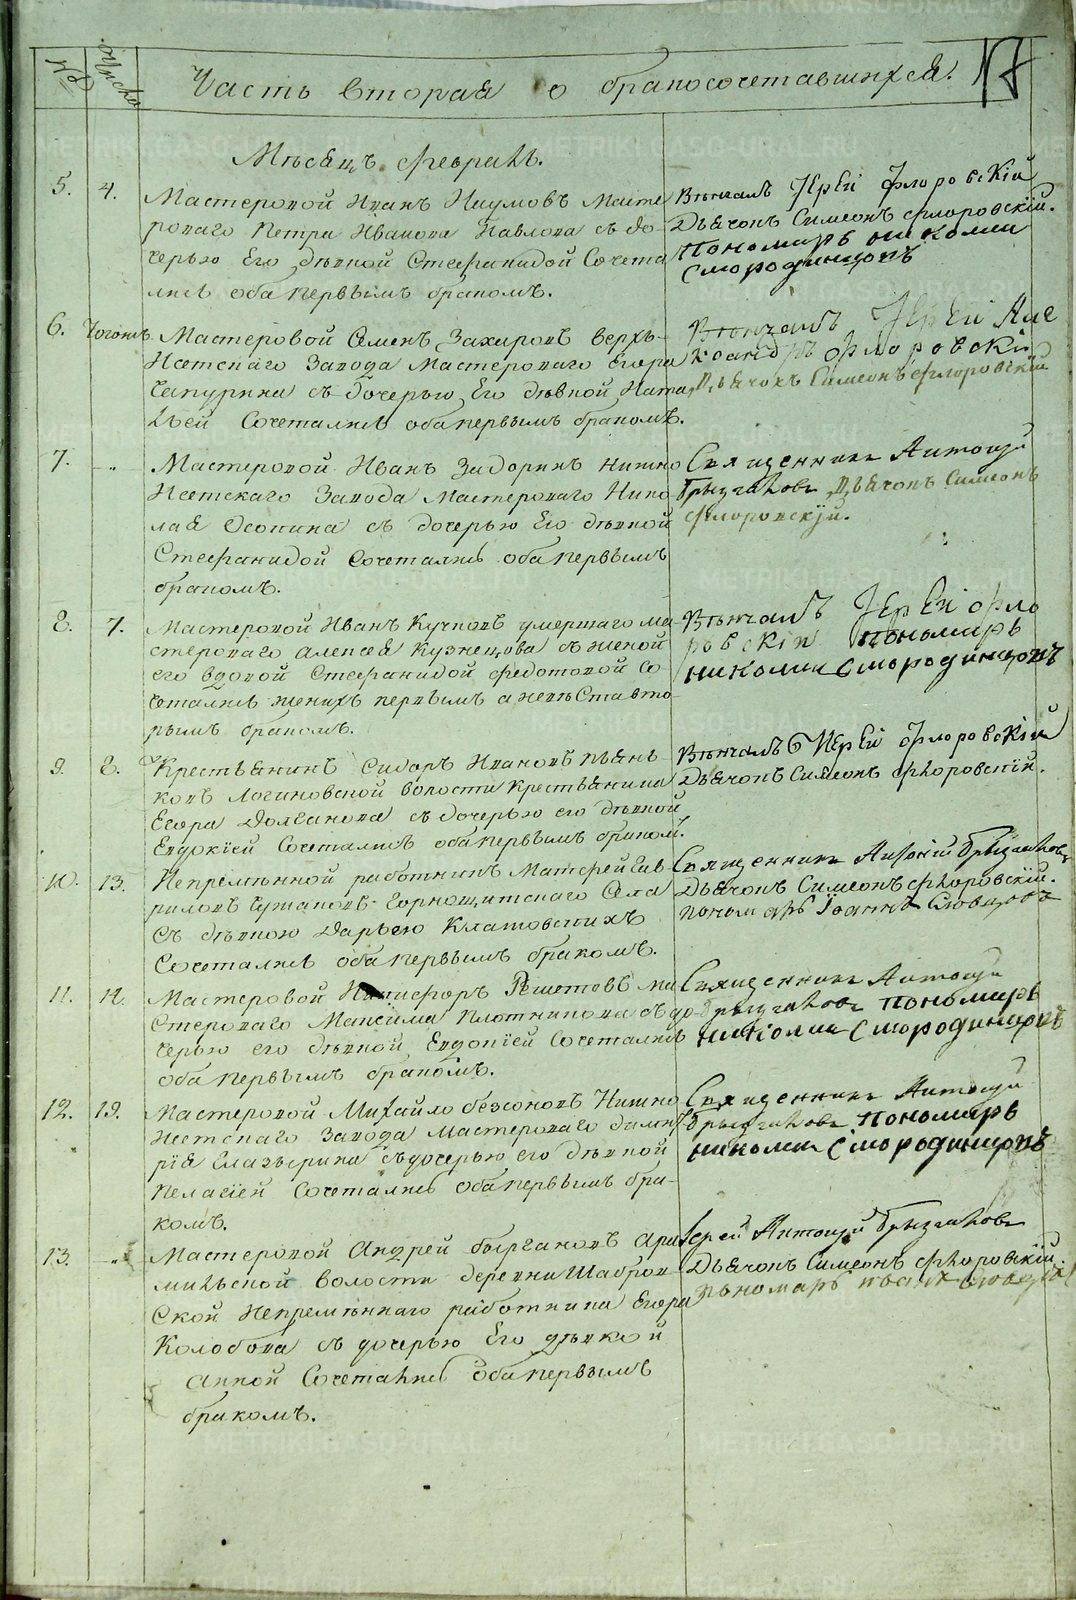 METRIKI.GASO-URAL.RU
№ Число Часть вторая о бракосочетавшихся. 17
Мѣсяцъ февраль.
5. 4. Мастеровой Иванъ Наумовъ масте
роваго Петра Иванова Павлова съ до
черью Его дѣвкой Стефанидой Сочета
лись оба первымъ бракомъ.
Вѣнчалъ Іерей Флоровскій
Дьячокъ Симеонъ Флоровскій.
Пономарь Николай
Смородинцовъ
6. Тогожъ Мастеровой Семенъ Захаровъ Верхъ-
Исетскаго Завода Мастероваго Егора
Чапурина съ дочерью Его дѣвкой Ната
льей Сочетались оба первымъ бракомъ.
Вѣнчалъ Іерей Але
ксандръ Флоровскій
Дьячокъ Симеонъ Флоровскій
7. -„- Мастеровой Иванъ Задоринъ Нижно
Исетскаго Завода Мастероваго Нико
лая Осокина съ дочерью Его дѣвкой
Стефанидой Сочетались оба первымъ
бракомъ.
Священникъ Антоній
Брызгаловъ Дьячокъ Симеонъ
Флоровскій.
8. 7. Мастеровой Иванъ Кучковъ умершаго ма
стероваго Алексея Кузнецова съ женой
его вдовой Стефанидой Федотовой со
четались женихъ первымъ а невѣста вто
рымъ бракомъ.
Вѣнчалъ Іерей Фло
ровскій Пономарь
Николай Смородинцовъ
9. 8. Крестьянинъ Сидоръ Ивановъ Пьян
ковъ Логиновской волости Крестьянина
Егора Долганова съ дочерью его дѣвкой
Евдокіей Сочетались оба первымъ бракомъ.
Вѣнчалъ Іерей Флоровскій
Дьячокъ Симеонъ Флоровскій.
10. 13. Непремѣнной работникъ Матфей Гав
риловъ Чушаковъ Горнощитскаго Села
съ дѣвкою Дарьею Клатовскихъ
Сочетались оба первымъ бракомъ.
Священникъ Антоній Брызгаловъ
Дьячокъ Симеонъ Флоровскій.
пономарь Іоаннъ Словцовъ
11. Мастеровой Никифоръ Решетовъ ма
стероваго Максима Плотникова съ до
черью его дѣвкой Евдокіей Сочетались
оба первымъ бракомъ.
Священникъ Антоній
Брызгаловъ Пономарь
Николай Смородинцовъ
12. 19. Мастеровой Михайло Безсоновъ Нижно
Исетскаго Завода мастероваго Дмит
рія Глазырина съ дочерью его дѣвкой
Пелагіей Сочетались оба первымъ бра-
комъ.
Священникъ Антоній
Брызгаловъ Пономарь
Николай Смородинцовъ
13. -„- Мастеровой Андрей Бызгановъ Ара
мильской волости деревни Шабров
ской Непремѣннаго работника Егора
Колобова съ дочерью Его дѣвкой
Анной Сочетались оба первымъ
бракомъ.
Іерей Антоній Брызгаловъ
Дьячокъ Симеонъ Флоровскій.
пономарь Словцовъ